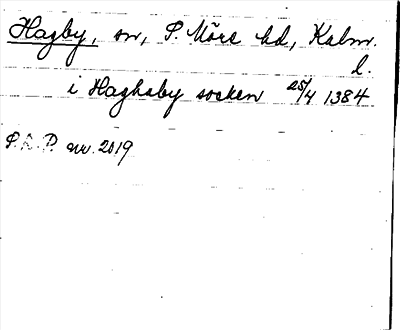 Hagby, sn, S. Möre hd, Kalm.
l.
i Haghaby socken 25/4 1384
S.R.P. nr. 2019